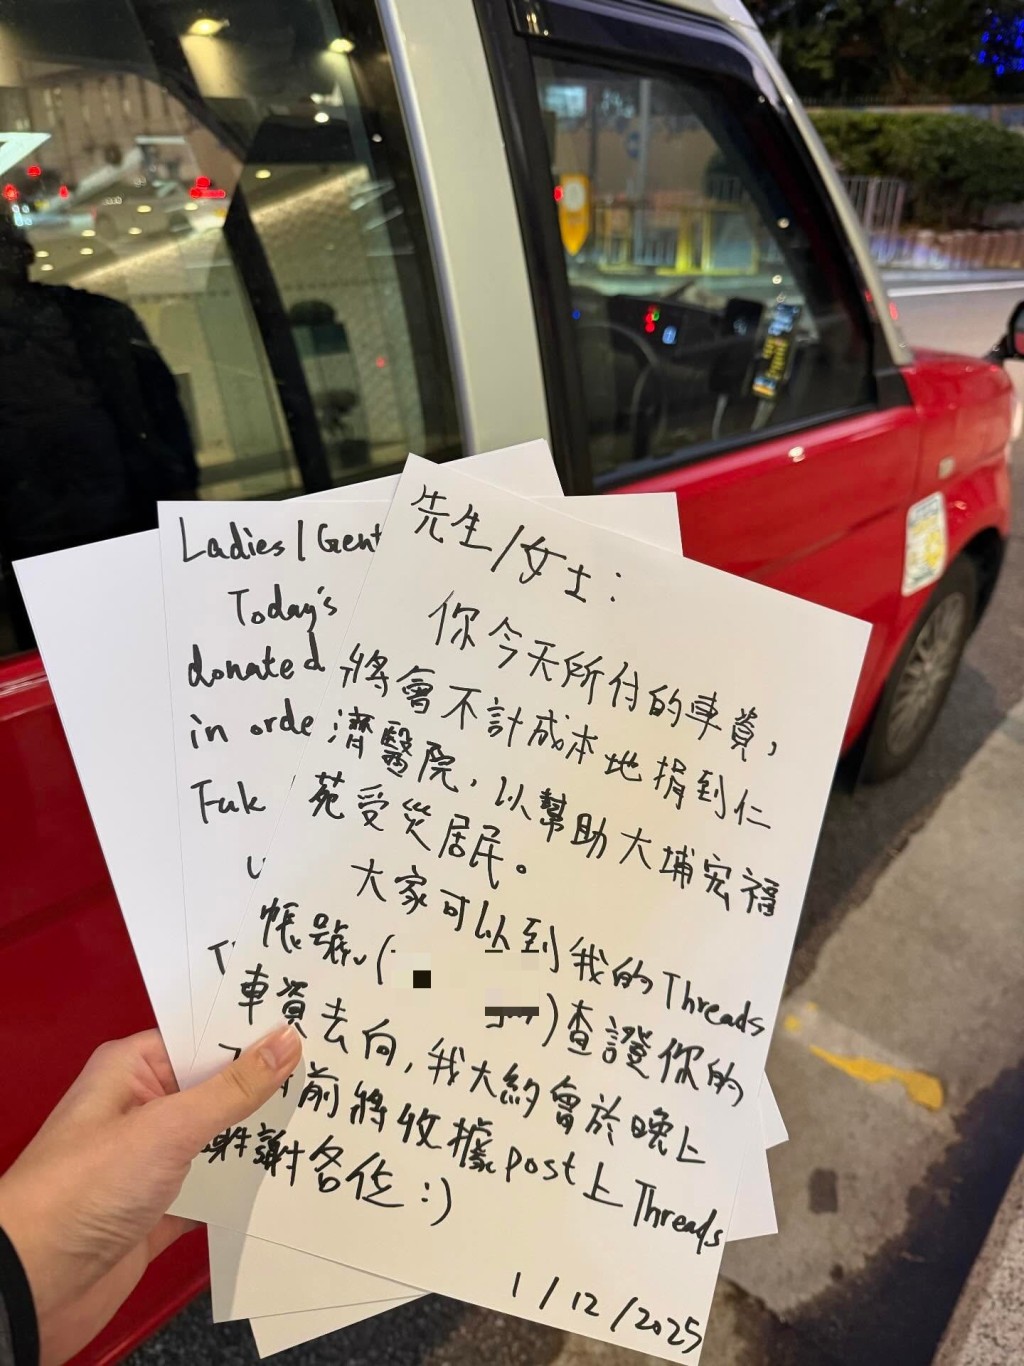 Ladies / Gent
Today's
donated
in orde
Fuk
先生/女士：
你今天所付的車資，
將會不計成本地捐到仁
濟醫院，以幫助大埔宏福
苑受災居民。
大家可以到我的Threads
帳號（
）查證你的
車資去向，我大約會於晚上
前將收據post上Threads
謝謝各位：)
1/12/2025